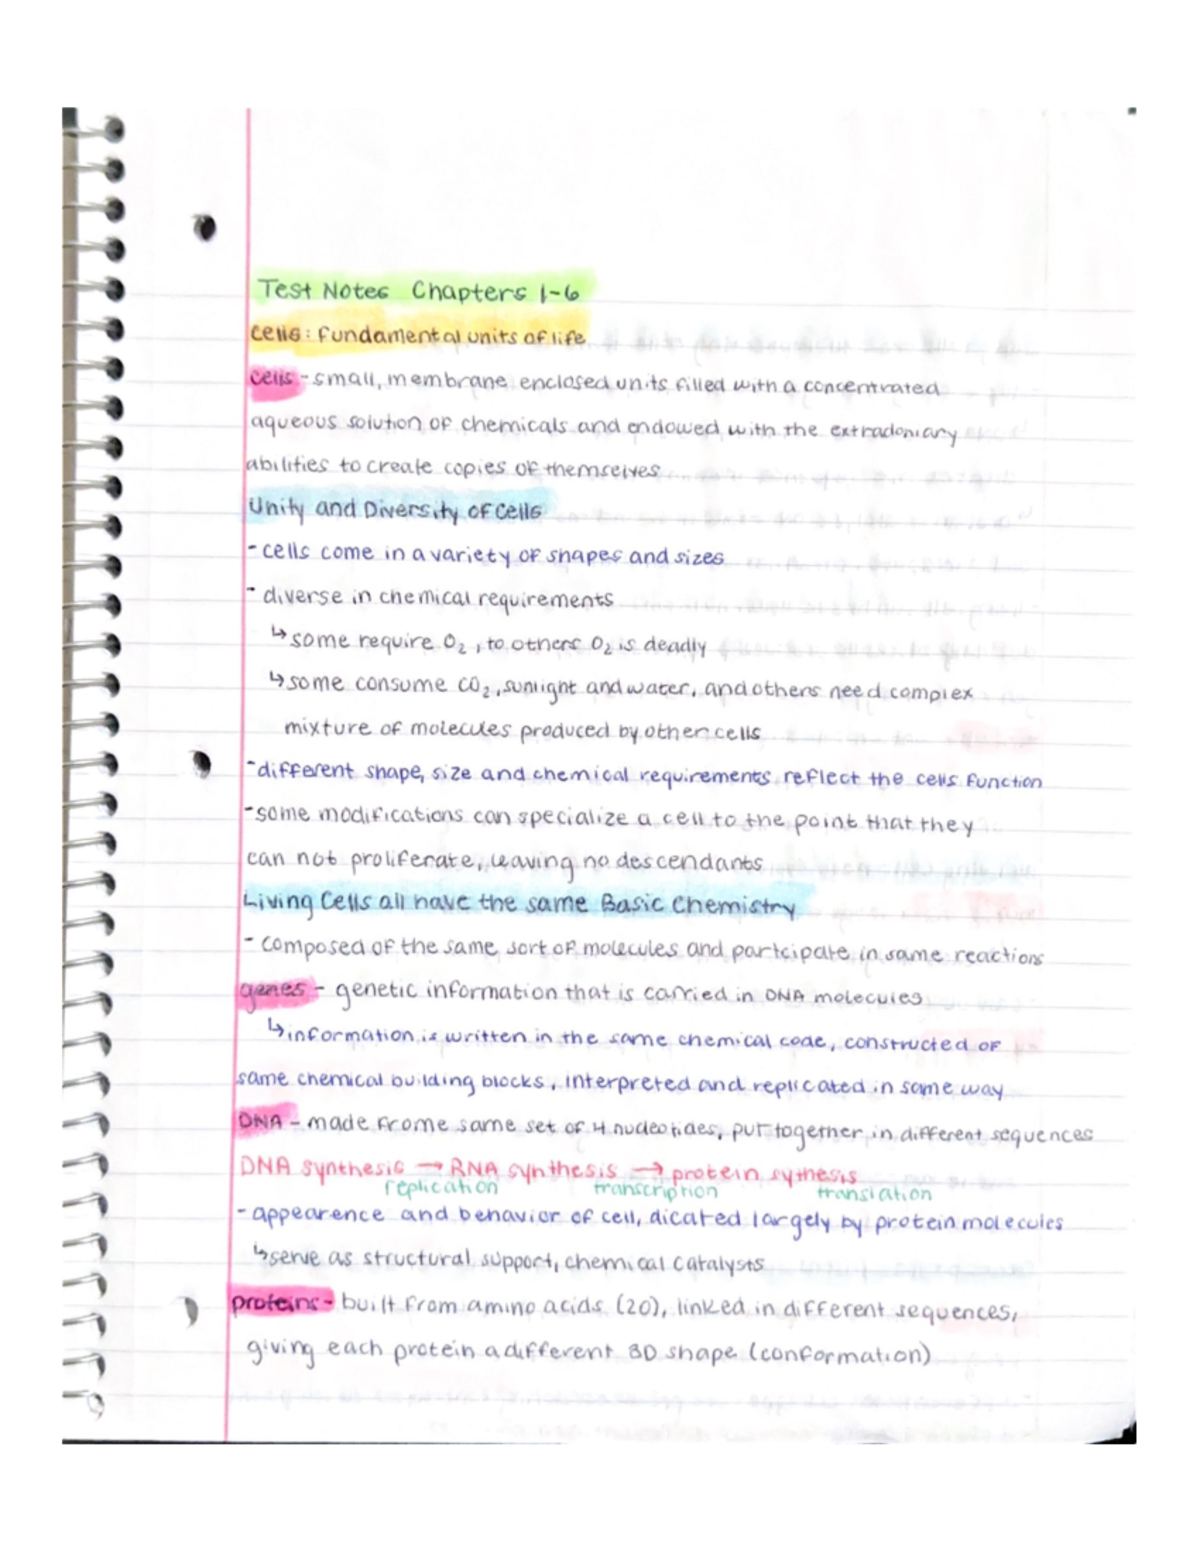 Test Notes Chapters 1-6
Cells: Fundamental units of life
Cells - small, membrane enclosed units filled with a concentrated
aqueous solution of chemicals and endowed with the extradoniary
abilities to create copies of themselves
Unity and Diversity of Cells
- cells come in a variety of shapes and sizes
- diverse in chemical requirements
↳ some require O₂, to others O₂ is deadly
↳ some consume CO₂, sunlight and water, and others need complex
mixture of molecules produced by other cells
- different shape, size and chemical requirements reflect the cells function
- some modifications can specialize a cell to the point that they
can not proliferate, leaving no descendants
Living Cells all have the same Basic Chemistry
- composed of the same sort of molecules and participate in same reactions
genes - genetic information that is carried in DNA molecules
↳ information is written in the same chemical code, constructed of
same chemical building blocks, interpreted and replicated in same way
DNA - made frome same set of 4 nucleotides, put together in different sequences
DNA synthesis → RNA synthesis → protein sythesis
replication transcription translation
- appearence and behavior of cell, dicated largely by protein molecules
↳ serve as structural support, chemical catalysts
proteins - built from amino acids (20), linked in different sequences,
giving each protein a different 3D shape (conformation)